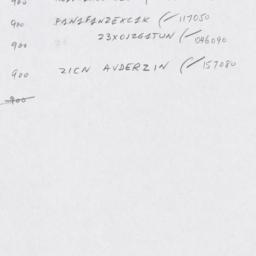 900
900 PANAPANZEXCAK (✓117050
900 23X0126ATUN (✓046090
900 ZICN AVDERZIN (✓157080
900